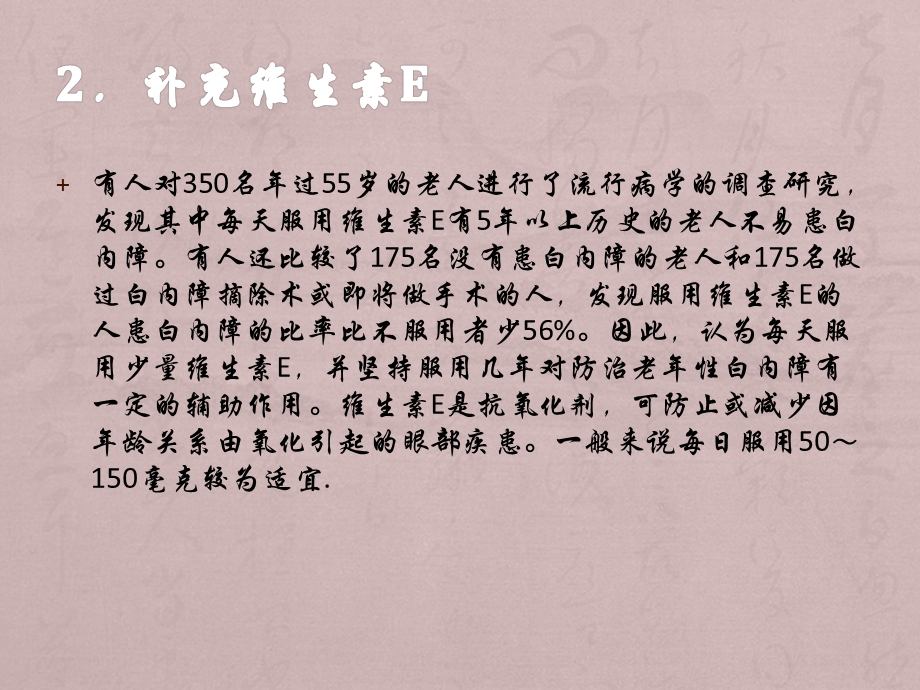 2．补充维生素E
+ 有人对350名年过55岁的老人进行了流行病学的调查研究，
发现其中每天服用维生素E有5年以上历史的老人不易患白
内障。有人还比较了175名没有患白内障的老人和175名做
过白内障摘除术或即将做手术的人，发现服用维生素E的
人患白内障的比率比不服用者少56%。因此，认为每天服
用少量维生素E，并坚持服用几年对防治老年性白内障有
一定的辅助作用。维生素E是抗氧化剂，可防止或减少因
年龄关系由氧化引起的眼部疾患。一般来说每日服用50～
150毫克较为适宜.